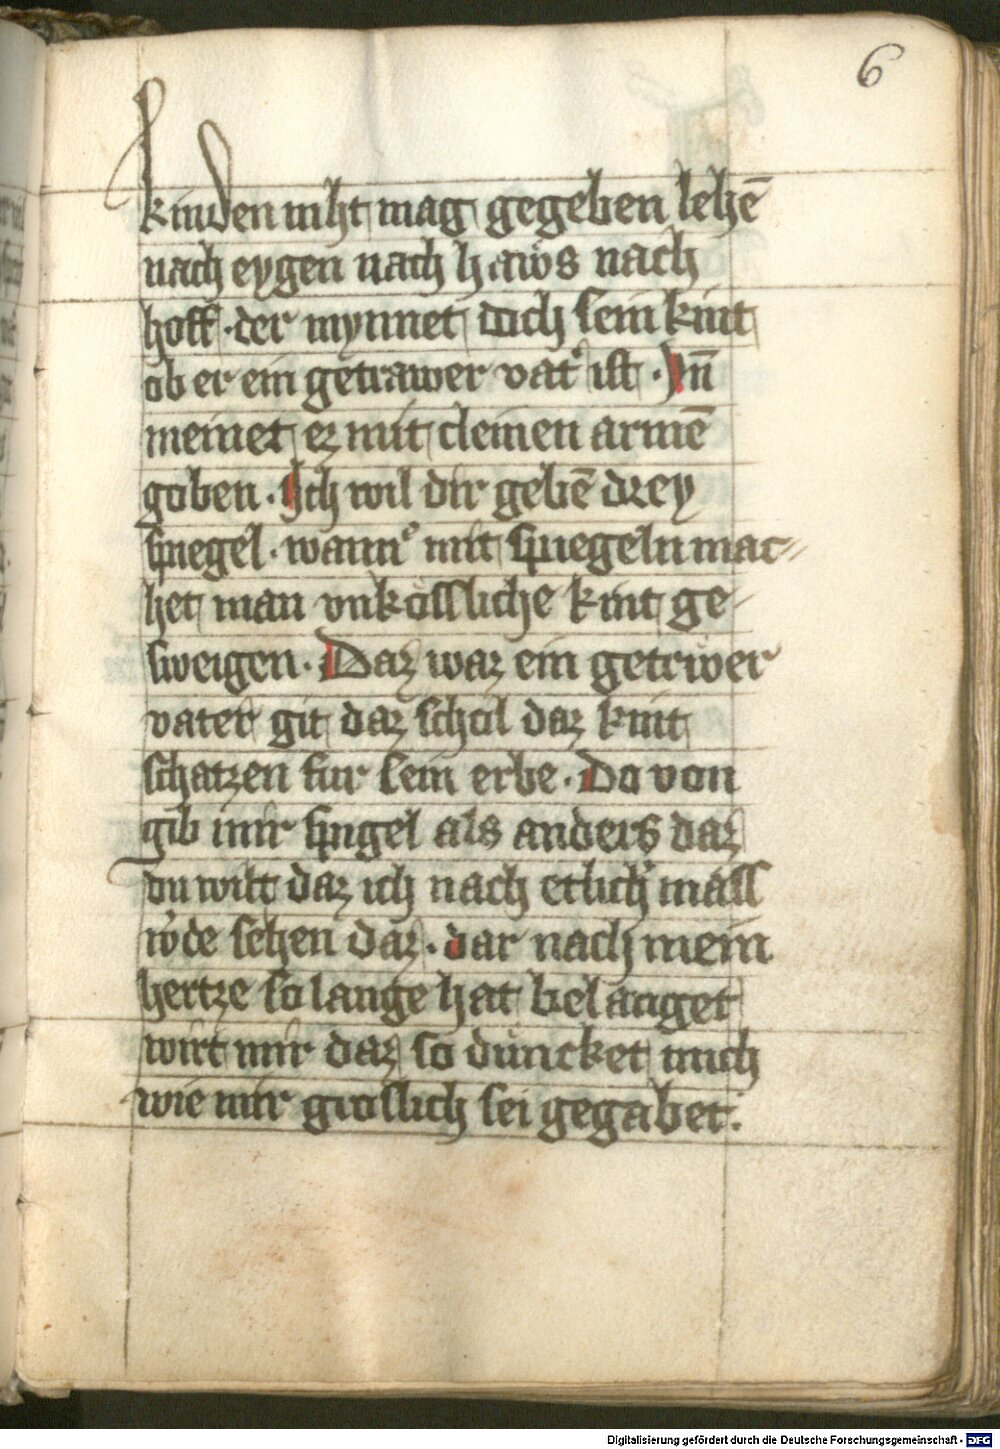 6
kinden niht mag gegeben lehē
nach eygen nach haws nach
hoff · der mynnet doch sein kint
ob er ein getrawer vat' ist · Vn̄
meinet ez mit cleinen armē
goben · Ich wil dir gebē drey
spiegel · wann° mit spiegeln mac⸗
het man vnkössliche kint ge-
sweigen · Daz waz ein getrwer
vater git daz schol daz kint
schatzen fur sein erbe · Do von
gib mir spigel als anders daz
du wilt daz ich nach etlich' mass
w'de sehen daz · dar nach mein
hertze so lange hat belanget
wirt mir daz so duncket mich
wie mir groslich sei gegabet ·
Digitalisierung gefördert durch die Deutsche Forschungsgemeinschaft - DFG